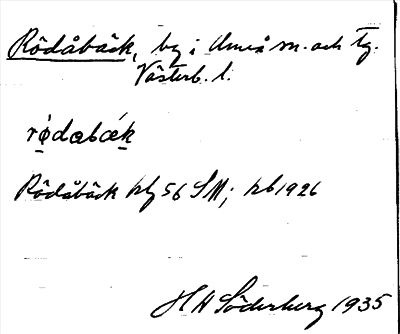 Rödåbäck, by i Umeå sn. och tg.
Västerb. l.
rødabæk
Rödåbäck blg 56 SM; kb 1926
H H Söderberg 1935